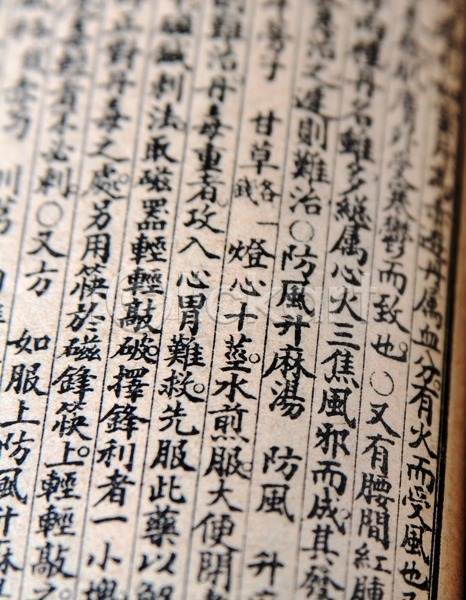 丹屬血分。有火而受風也
鬱而致也○又有腰間紅腫
丹名雖多總屬心火三焦風邪而成其發
治之遲則難治○防風升麻湯 防風 升
甘草各一錢 燈心十莖。水煎服大便閉
難治丹毒重者攻入心胃難救。先服此藥以解
刺法。取磁器輕輕敲破。擇鋒利者一小塊
正對丹毒之處。另用筷於磁鋒筷上。輕輕敲之
者不必刺。○又方 如服上防風升麻